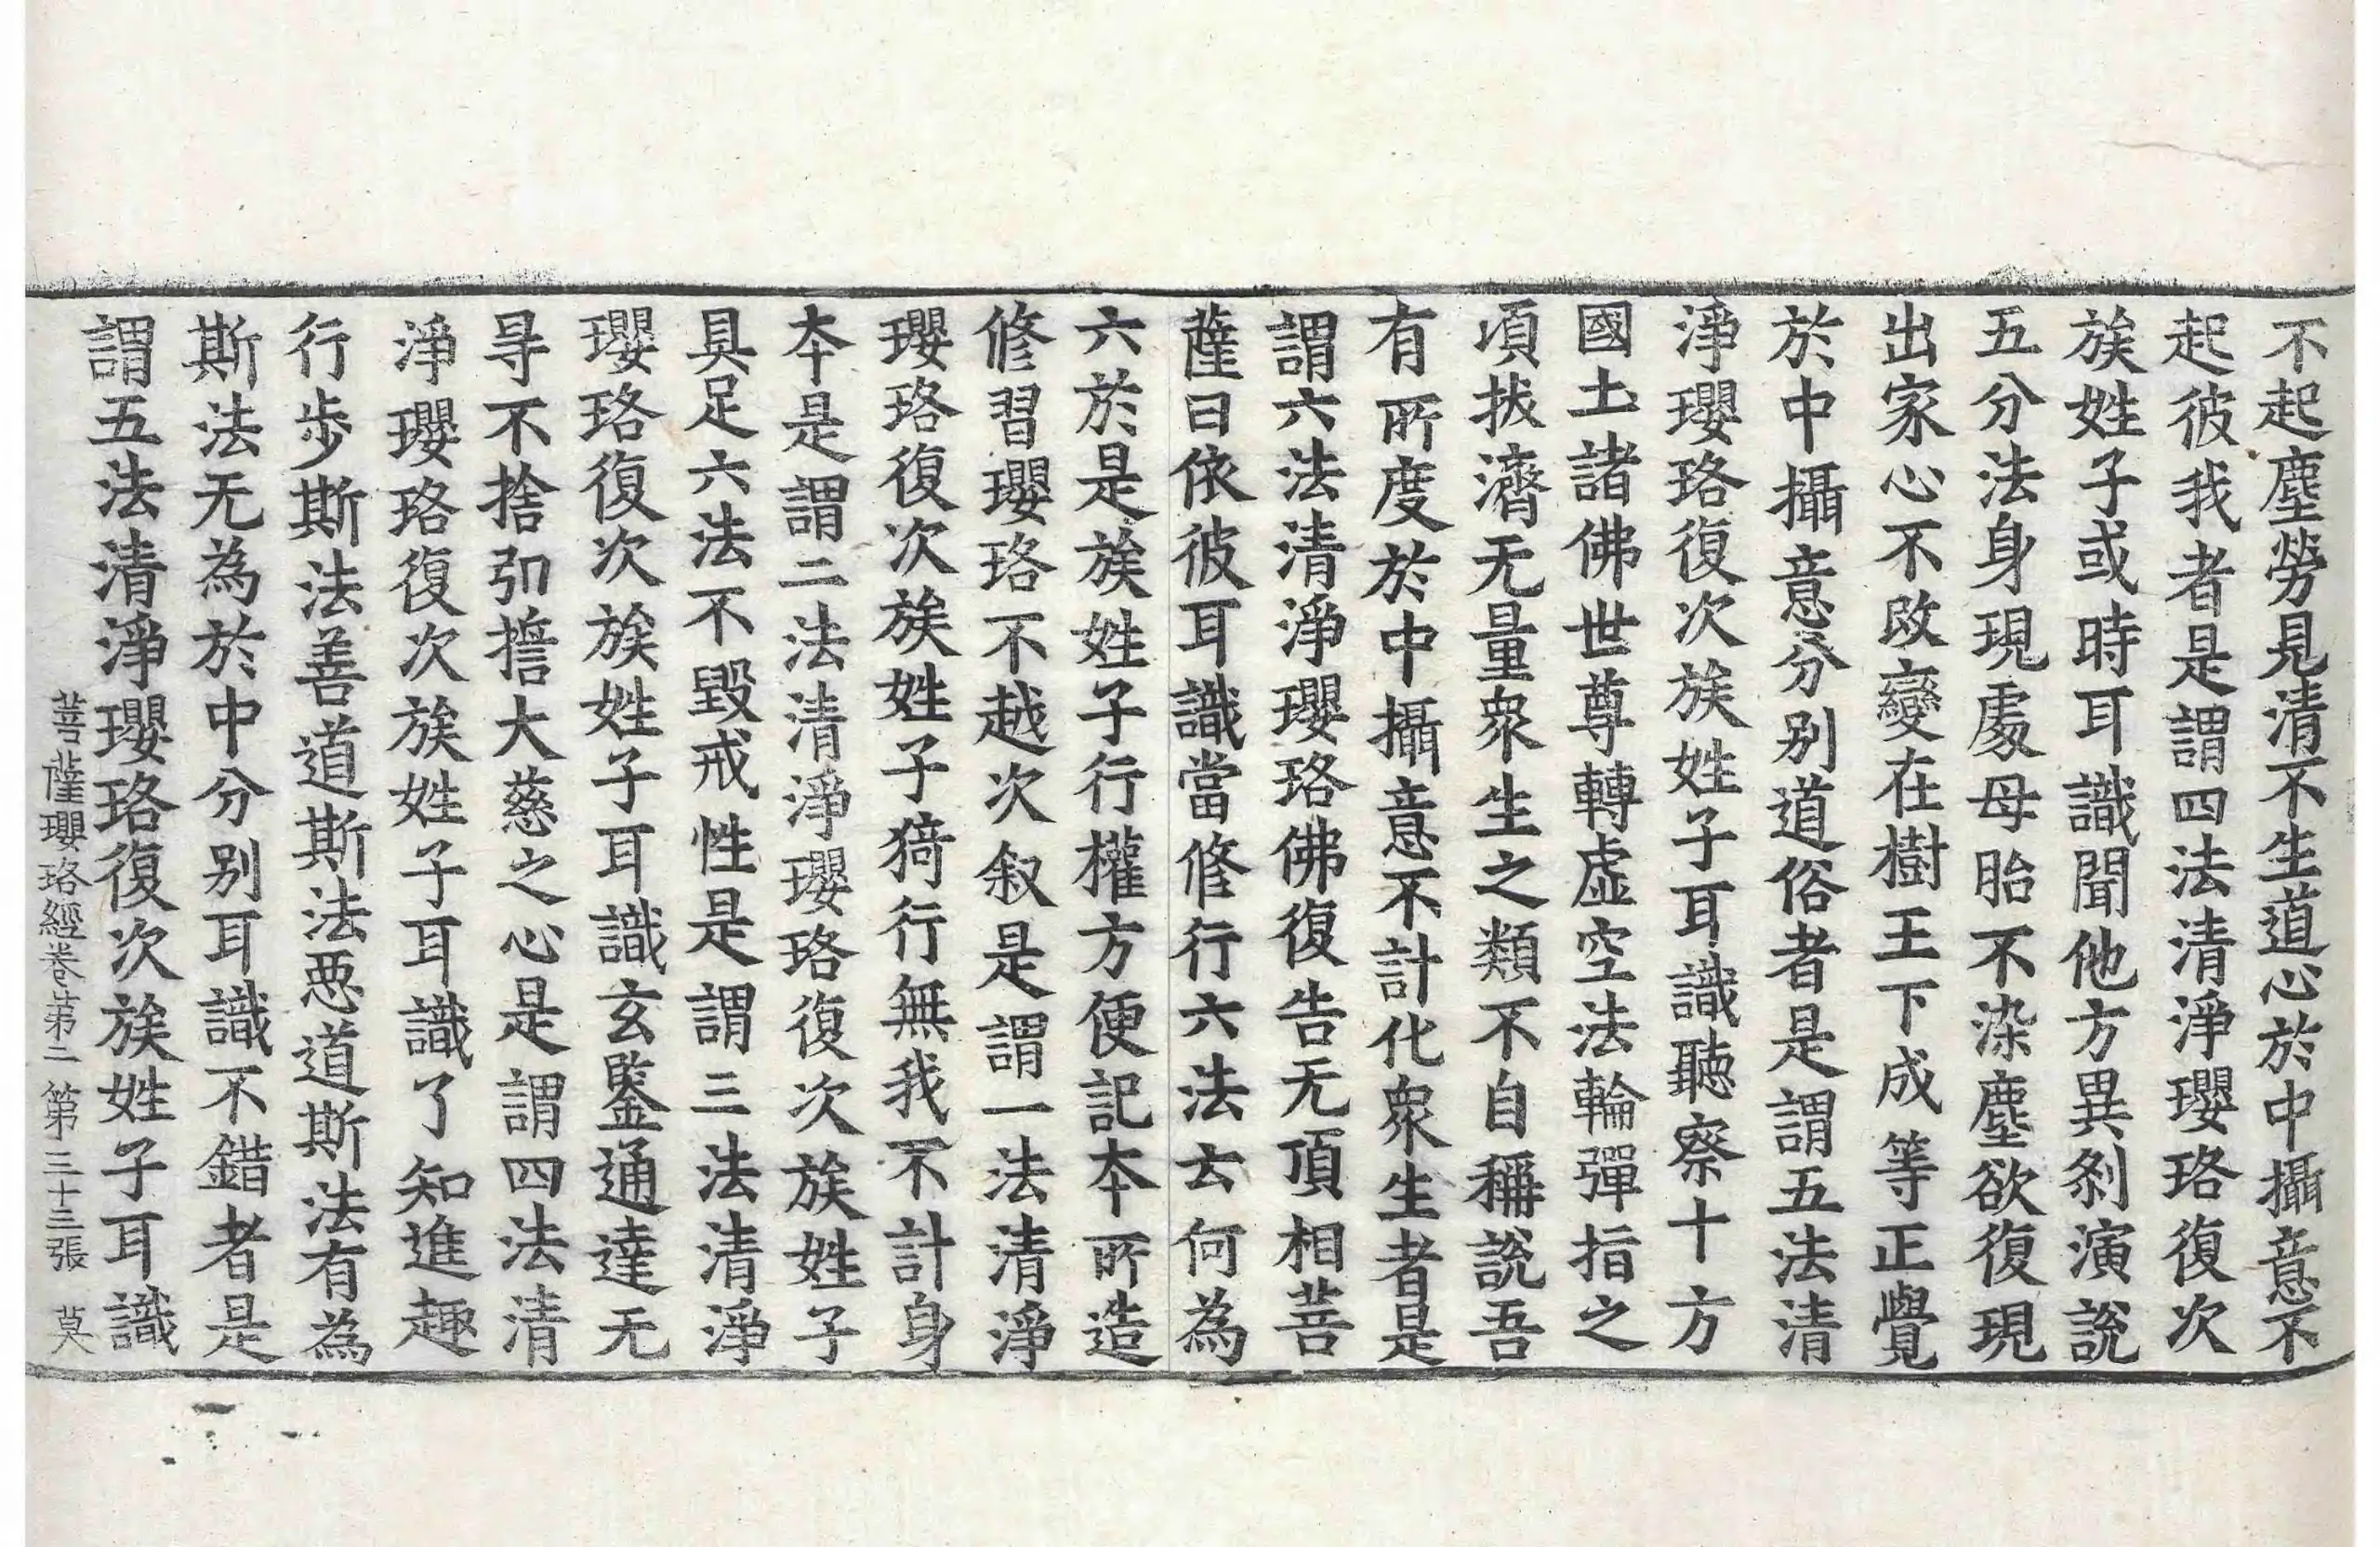 不起塵勞見清不生道心於中攝意不
起彼我者是謂四法清淨瓔珞復次
族姓子或時耳識聞他方異刹演說
五分法身現處母胎不染塵欲復現
出家心不改變在樹王下成等正覺
於中攝意分别道俗者是謂五法清
淨瓔珞復次族姓子耳識聽察十方
國土諸佛世尊轉虚空法輪彈指之
項拔濟无量衆生之類不自稱說吾
有所度於中攝意不計化衆生者是
謂六法清淨瓔珞佛復告无頂相菩
薩曰依彼耳識當修行六法云何為
六於是族姓子行權方便記夲所造
修習瓔珞不越次叙是謂一法清淨
瓔珞復次族姓子猗行無我不計身
夲是謂二法清淨瓔珞復次族姓子
具足六法不毀戒性是謂三法清淨
瓔珞復次族姓子耳識玄鑒通達无
㝵不捨弘擔大慈之心是謂四法清
淨瓔珞復次族姓子耳識了知進趣
行步斯法善道斯法惡道斯法有為
斯法无為於中分别耳識不錯者是
謂五法清淨瓔珞復次族姓子耳識
菩薩瓔珞經卷第二 第三十三張 莫